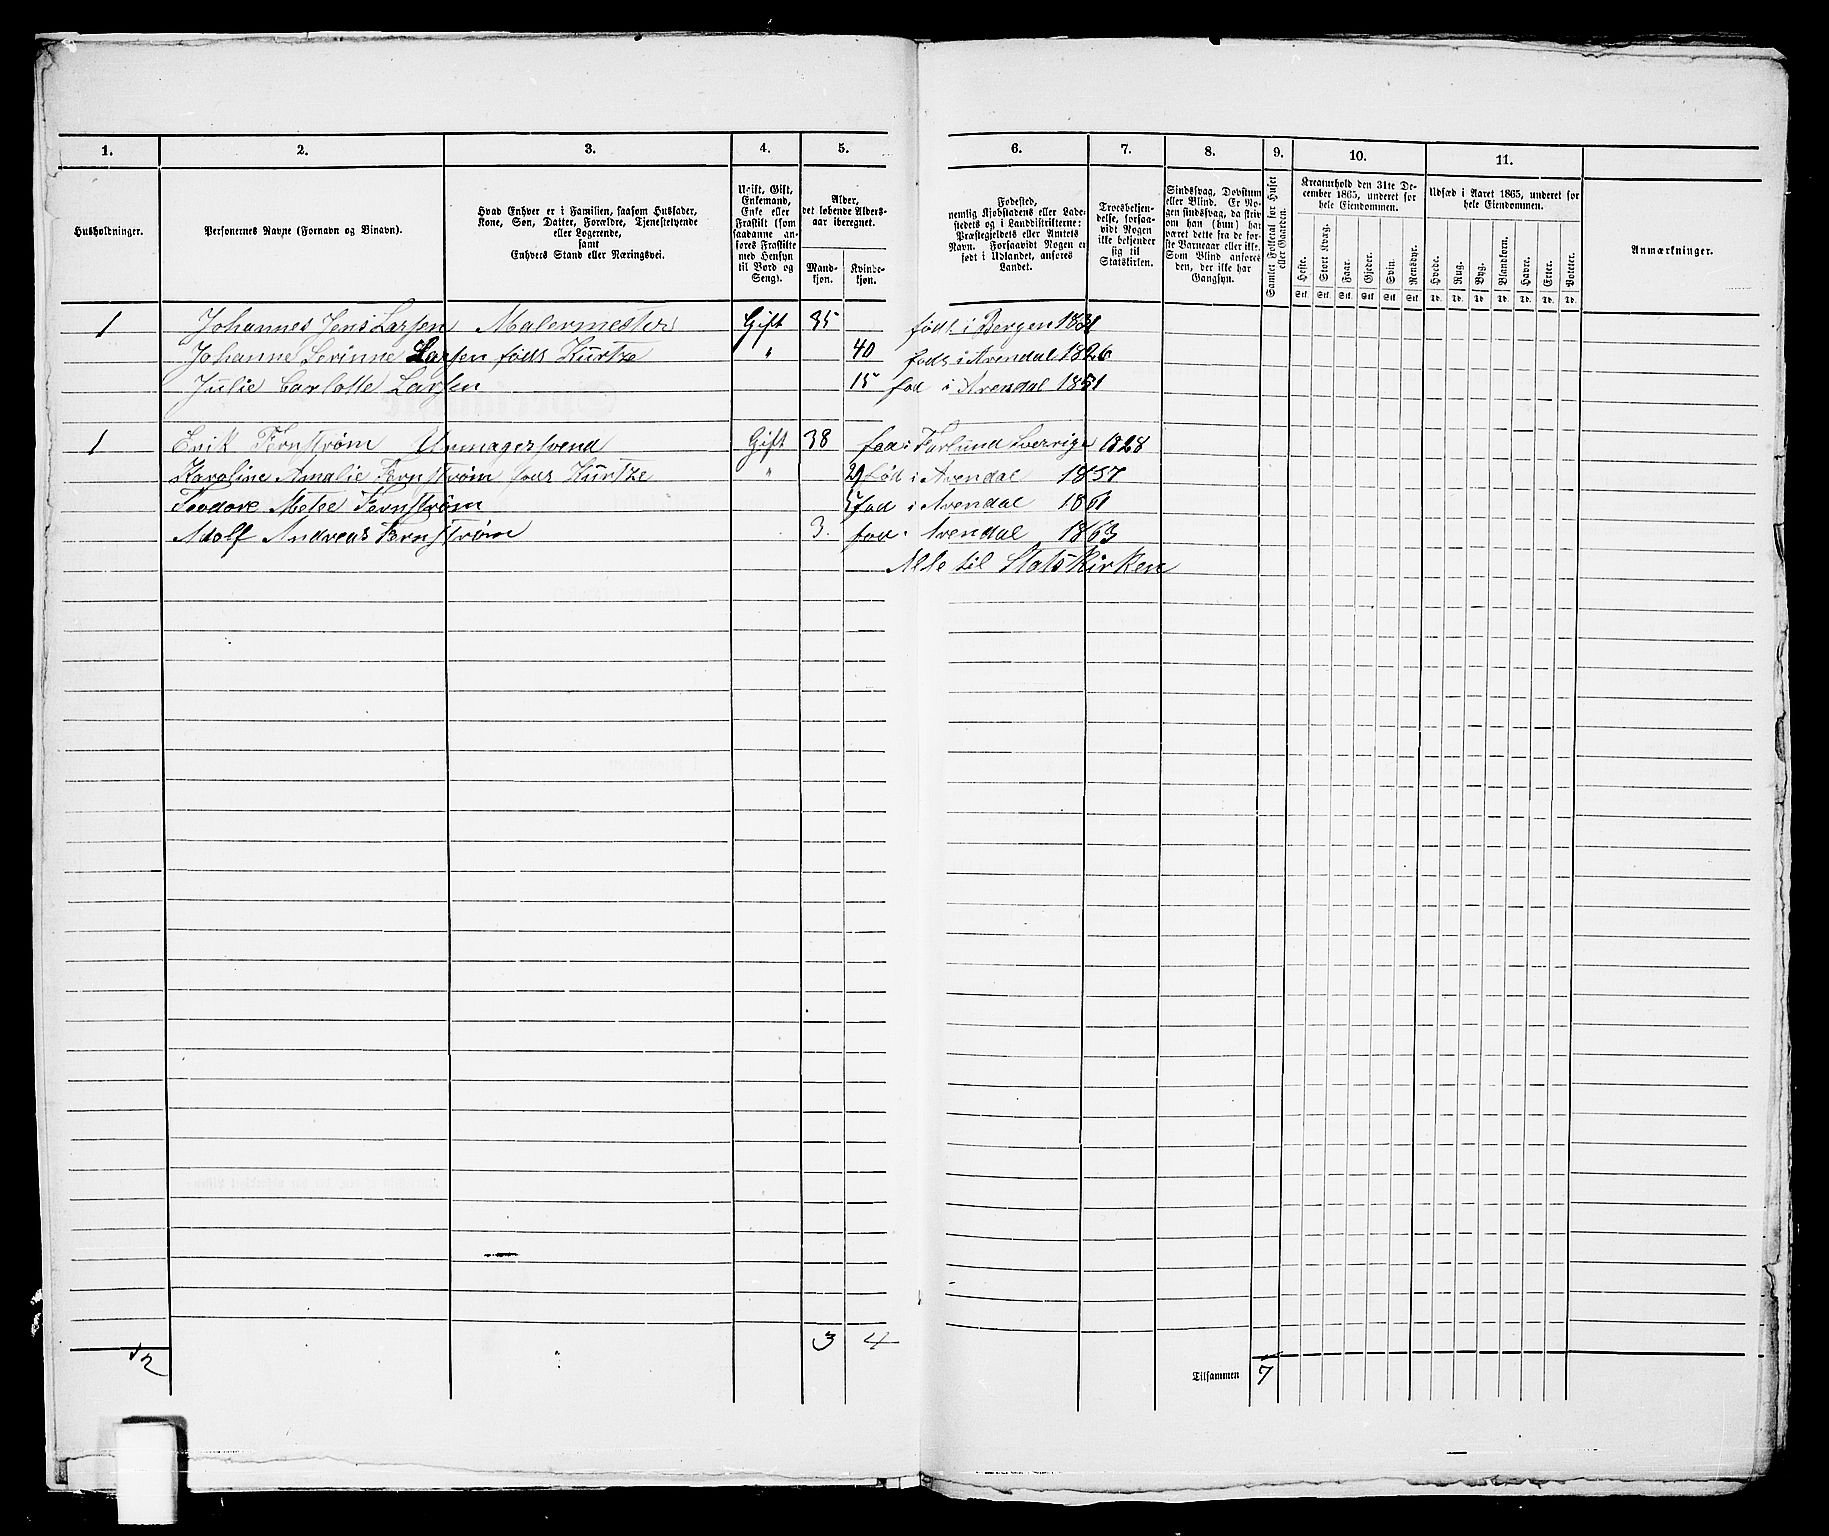 1. 2. 3. 4. 5. 6. 7. 8. 9. 10. 11.
Husholdninger.
Personernes Navne (Fornavn og Binavn).
Hvad Enhver er i Familien, saasom Husfader,
Kone, Søn, Datter, Forældre, Tjenestetyende
eller Logerende,
samt
Enhvers Stand eller Næringsvei.
Ugift, Gift,
Enkemand,
Enke eller
Fraskilt (som
saadanne an-
føres Fraskilte
med Hensyn
til Bord og
Seng).
Alder,
det løbende Alders-
aar iberegnet.
Mand-
kjøn.
Kvinde-
kjøn.
Fødested,
nemlig Kjøbstadens eller Lade-
stedets og i Landdistrikterne:
Præstegjeldets eller Amtets
Navn. Forsaavidt Nogen er
født i Udlandet, anføres
Landet.
Troesbekjen-
delse, forsaa-
vidt Nogen
ikke bekjender
sig til
Statskirken.
Sindssvag, Døvstum
eller Blind. Er No-
gen sindssvag, da skriv
om han (hun) har
været dette fra de før-
ste Barneaar eller ikke.
Som Blind anføres
den, der ikke har
Gangsyn.
Samlet Folketal for Huset
eller Gaarden.
Kreaturhold den 31te De-
cember 1865, underet for
hele Eiendommen.
Heste. Stort Kvæg. Faar. Gjeder. Svin. Rensdyr.
Stk. Stk. Stk. Stk. Stk. Stk.
Udsæd i Aaret 1865, underet for
hele Eiendommen.
Hvede. Rug. Byg. Blandkorn. Havre. Erter. Poteter.
Td. Td. Td. Td. Td. Td. Td.
Anmærkninger.
1 Johannes Jens Larsen Malermester Gift 35 født i Bergen 1831
Johanne Serinne Larsen føds Kurtze " 40 føds i Arendal 1826
Julie Carlotte Larsen 15 fød i Arendal 1851
1 Erik Fernstrøm Uhrmagersvend Gift 38 fød i Sverrige 1828
Karoline Amalie Fernstrøm føds Kurtze " 29 fød i Arendal 1837
Teodore Metee Fernstrøm 5 fød i Arendal 1861
Adolf Andreas Fernstrøm 3. fød i Arendal 1863
Alle til Statskirken
2 3 4
Tilsammen 7